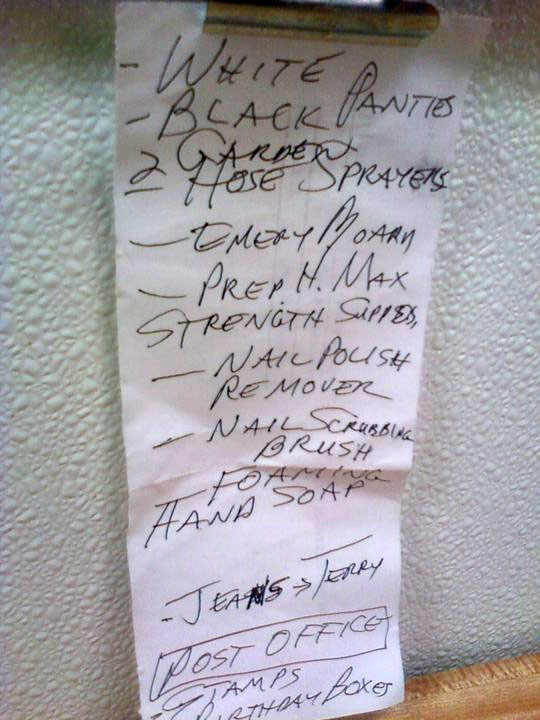 - WHITE
- BLACK PANTIES
2 GARDEN
HOSE SPRAYERS
- EMERY BOARD
- PREP. H. MAX
STRENGTH SUPPOS,
- NAIL POLISH
REMOVER
- NAIL SCRUBBING
BRUSH
- FOAMING
HAND SOAP
- JEANS → TERRY
POST OFFICE
- STAMPS
- BIRTHDAY BOXES